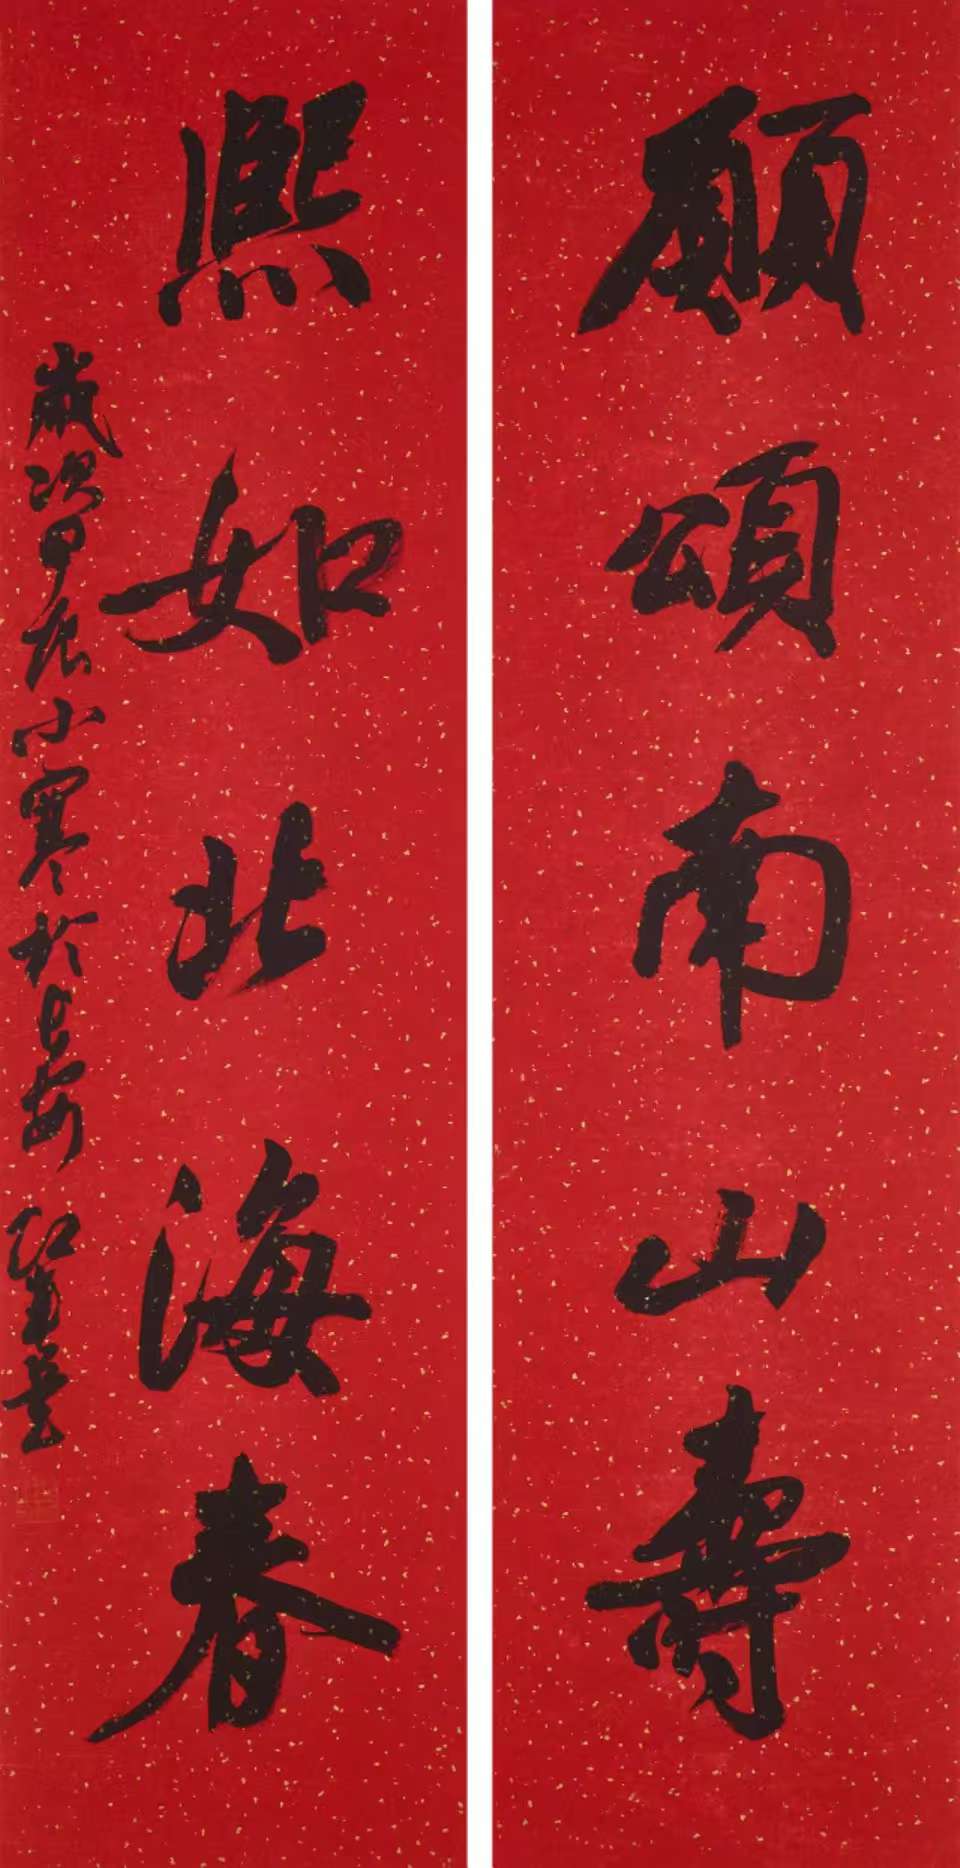 願頌南山壽
熙如北海春
歲次甲辰小寒於長安